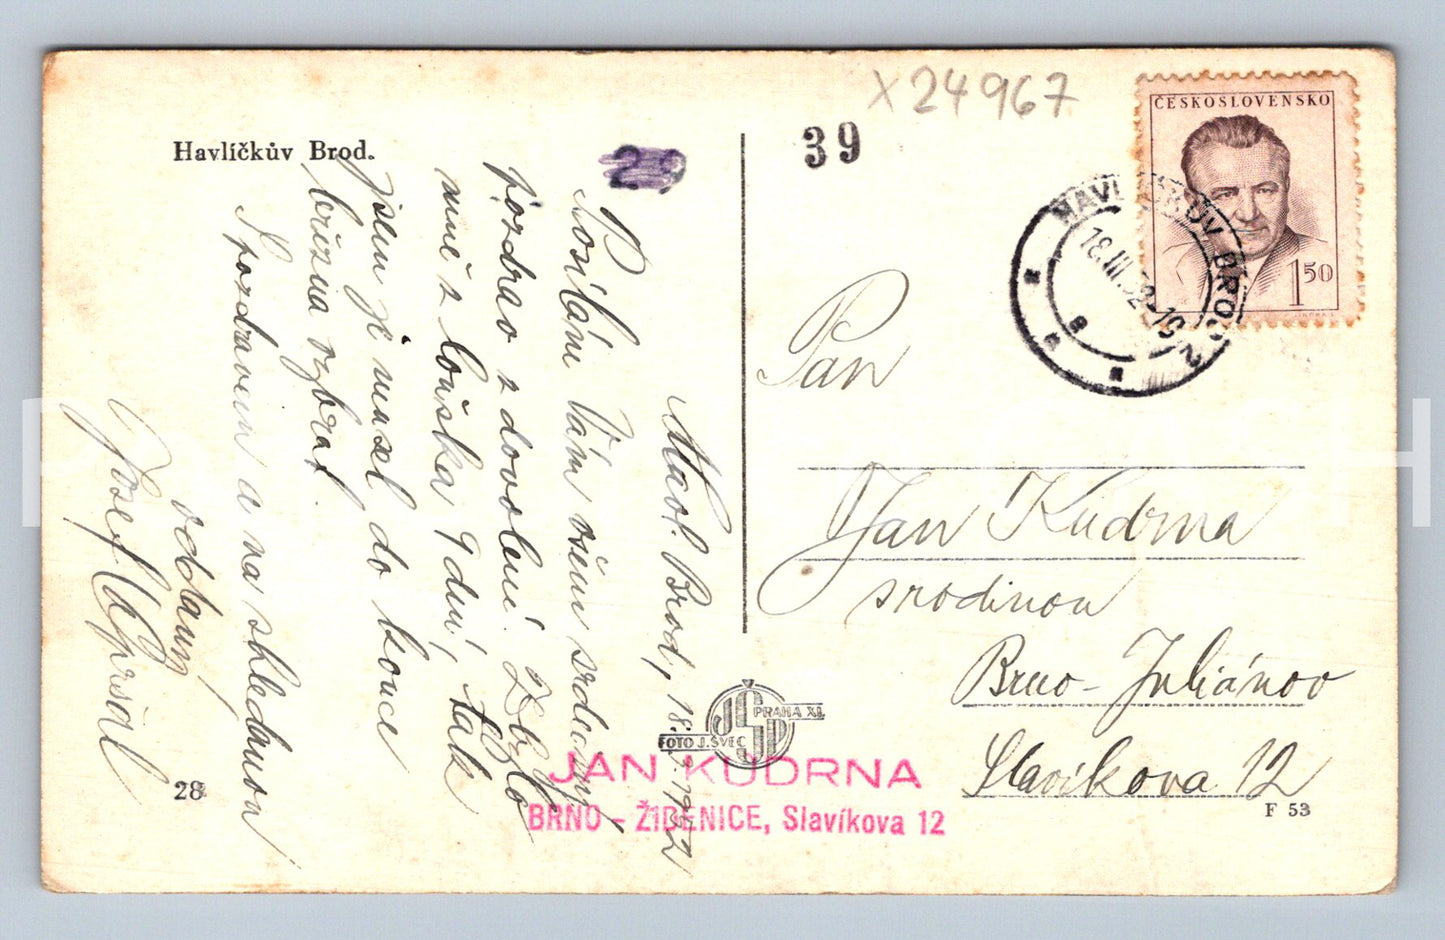 X24967
39
29
ČESKOSLOVENSKO
1 50
HAVLÍČKŮV BROD 2
18.III.52-19
Havlíčkův Brod.
Havl. Brod, 18.3.1952
Posílám Vám všem srdečný
pozdrav z dovolené. Zbylo
mně z loňska 9 dní, tak
jsem je musel do konce
března vybrat.
S pozdravem a na shledanou
oddaný
Josef
28
Pan
Jan Kudrna
s rodinou
Brno-Juliánov
Slavíkova 12
FOTO J. ŠVEC
PRAHA XI.
JAN KUDRNA
BRNO - ŽIDENICE, Slavíkova 12
F 53